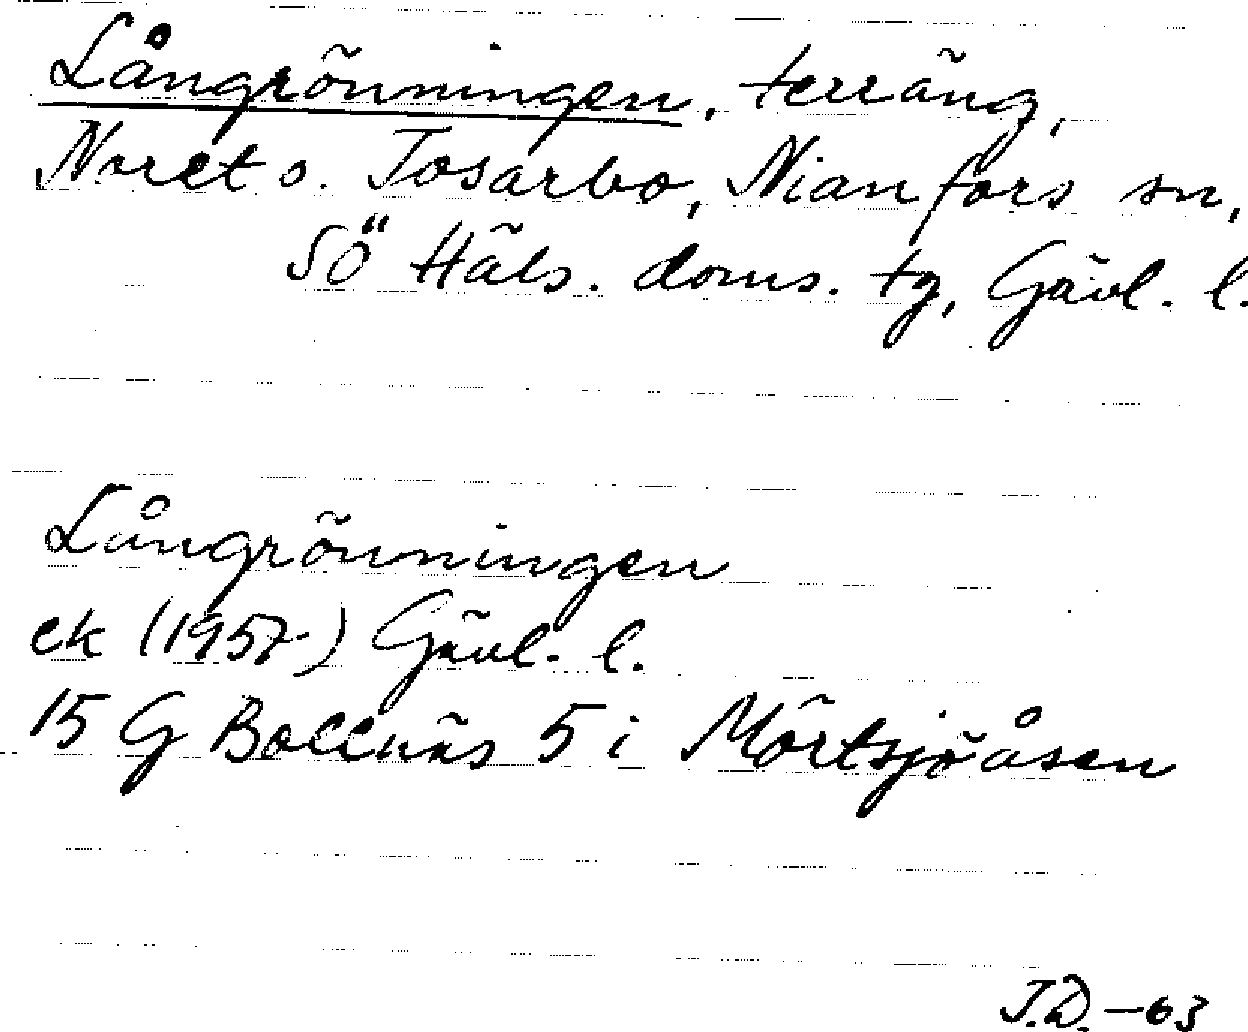 Långrönningen, terräng,
Noret o. Tosarbo, Nianfors sn,
SÖ Häls. doms. tg, Gävl. l.
Långrönningen
ek (1957-) Gävl. l.
15 G Bollnäs 5 i Mörtsjöåsen
J.D. -63